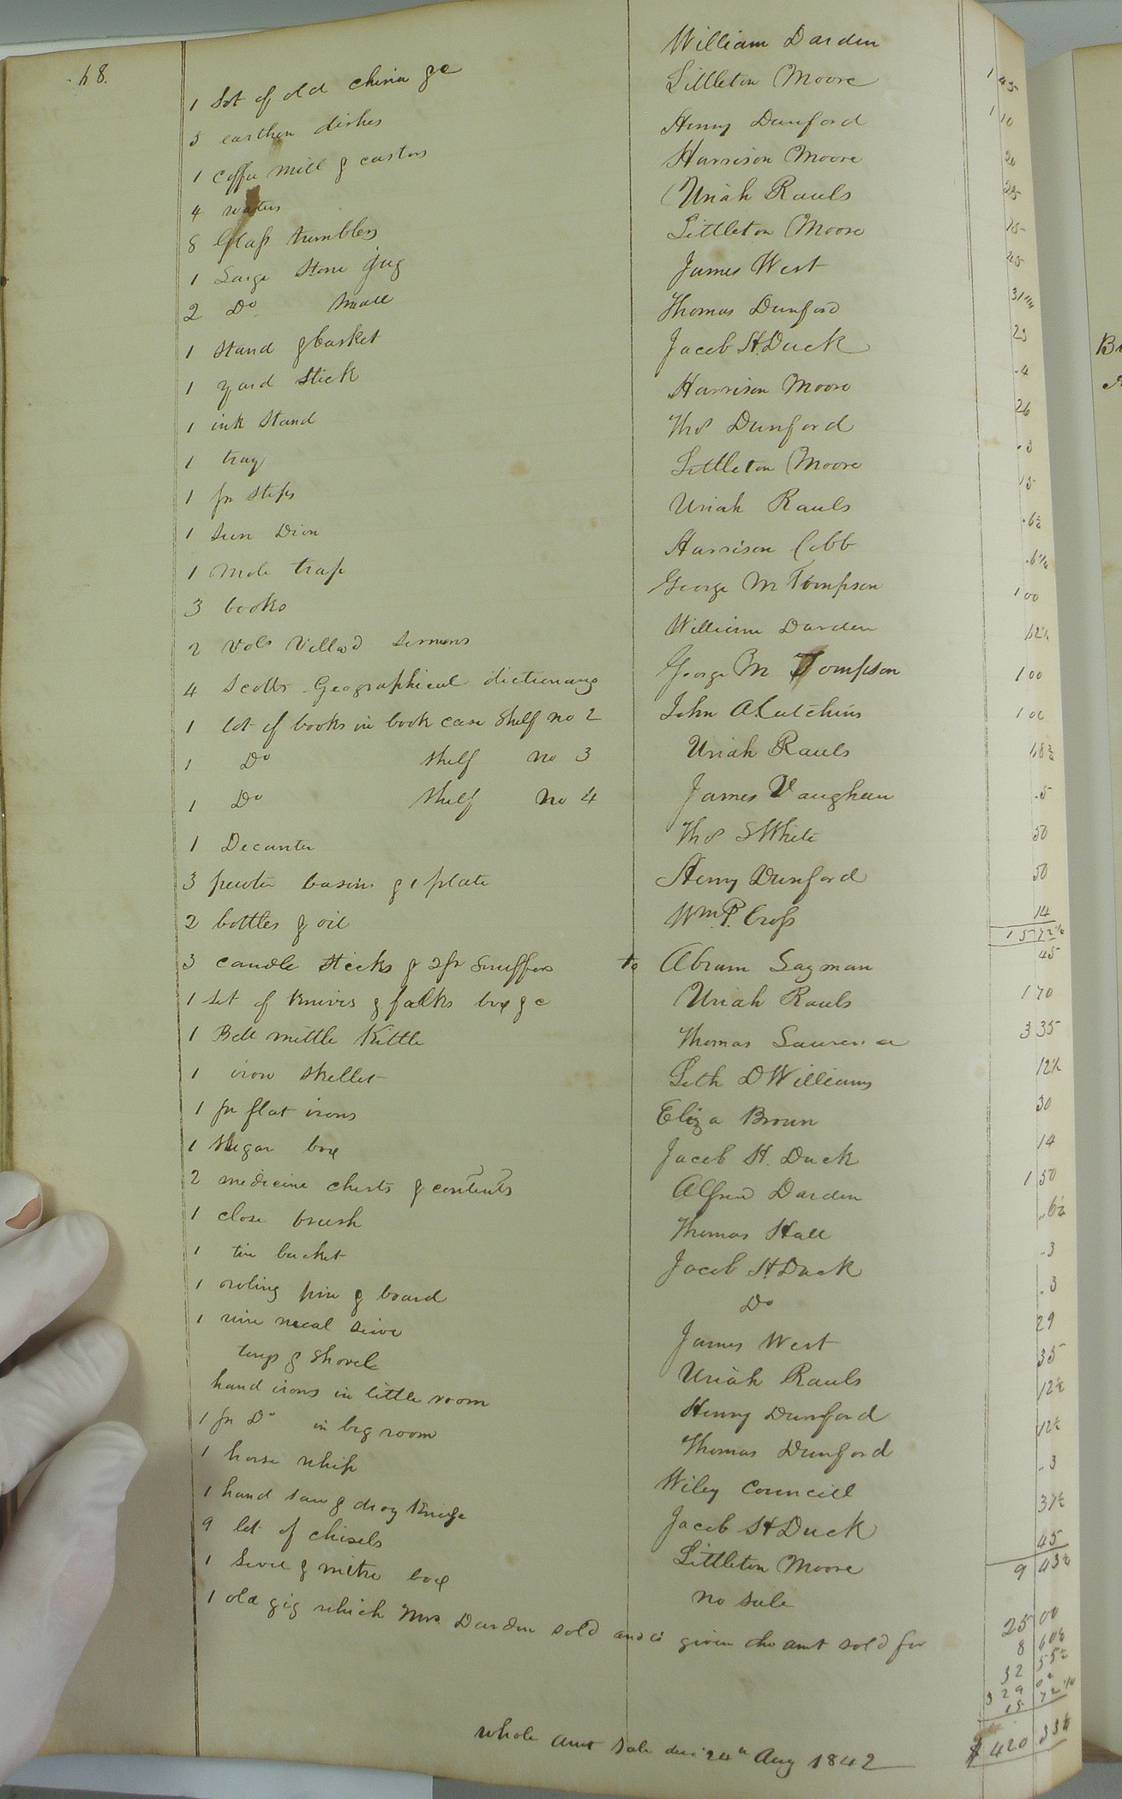 68.
1 Set of old china &c William Darden 1 45
5 earthen dishes Littleton Moore 1 10
1 Coffee mill & castors Henry Dunford 26
4 waters Harrison Moore 25
8 Glass tumblers Uriah Rauls 15
1 Large Stone jug Littleton Moore 25
2 Do Small James West 31
1 Stand & basket Thomas Dunford 25
1 yard Stick Jacob H. Duck 4
1 ink Stand Harrison Moore 26
1 tray Thos Dunford 3
1 pr Steps Littleton Moore 15
1 Sun Dion Uriah Rauls 6½
1 Mole trap Harrison Cobb 6¼
3 books George M Tompson 1 00
2 Vols Sermons William Darden 62½
4 Scotts Geographical dictionary George M Tompson 1 00
1 lot of books in book case Shelf no 2 John A Cutchins 1 00
1 Do Shelf no 3 Uriah Rauls 68½
1 Do Shelf No 4 James Vaughan 5
1 Decanter Thos S White 50
3 pewter basins & 1 plate Henry Dunford 50
2 bottles & oil Wm. P. Cross 14
15 72½
3 candle Sticks & 2 pr Snuffers to Abram Lagman 45
1 Set of Knives & falks box &c Uriah Rauls 1 70
1 Bell mettle Kittle Thomas Laurence 3 35
1 iron Skellet Seth D Williams 12½
1 pr flat irons Eliza Broun 30
1 Shugar box Jacob H. Duck 14
2 medicine chests & contents Alfred Darden 1 50
1 close brush Thomas Hall 6½
1 tin bucket Jacob H. Duck 3
1 roling pin & board Do 3
1 wire meal Seive James West 29
tongs & Shovel Uriah Rauls 35
hand irons in little room Henry Dunford 12½
1 pr Do in big room Thomas Dunford 12½
1 horse whip Wiley Councill 3
1 hand Saw & drag Knife Jacob H Duck 37½
9 lot of chisels Littleton Moore 45
9 43½
1 & mitre box no sale
1 old gig which Mrs Darden sold and is given the amt sold for 25 00
8 60½
32 55½
329
15 72½
whole amt Sale dec 24th Aug 1842 $420 33½